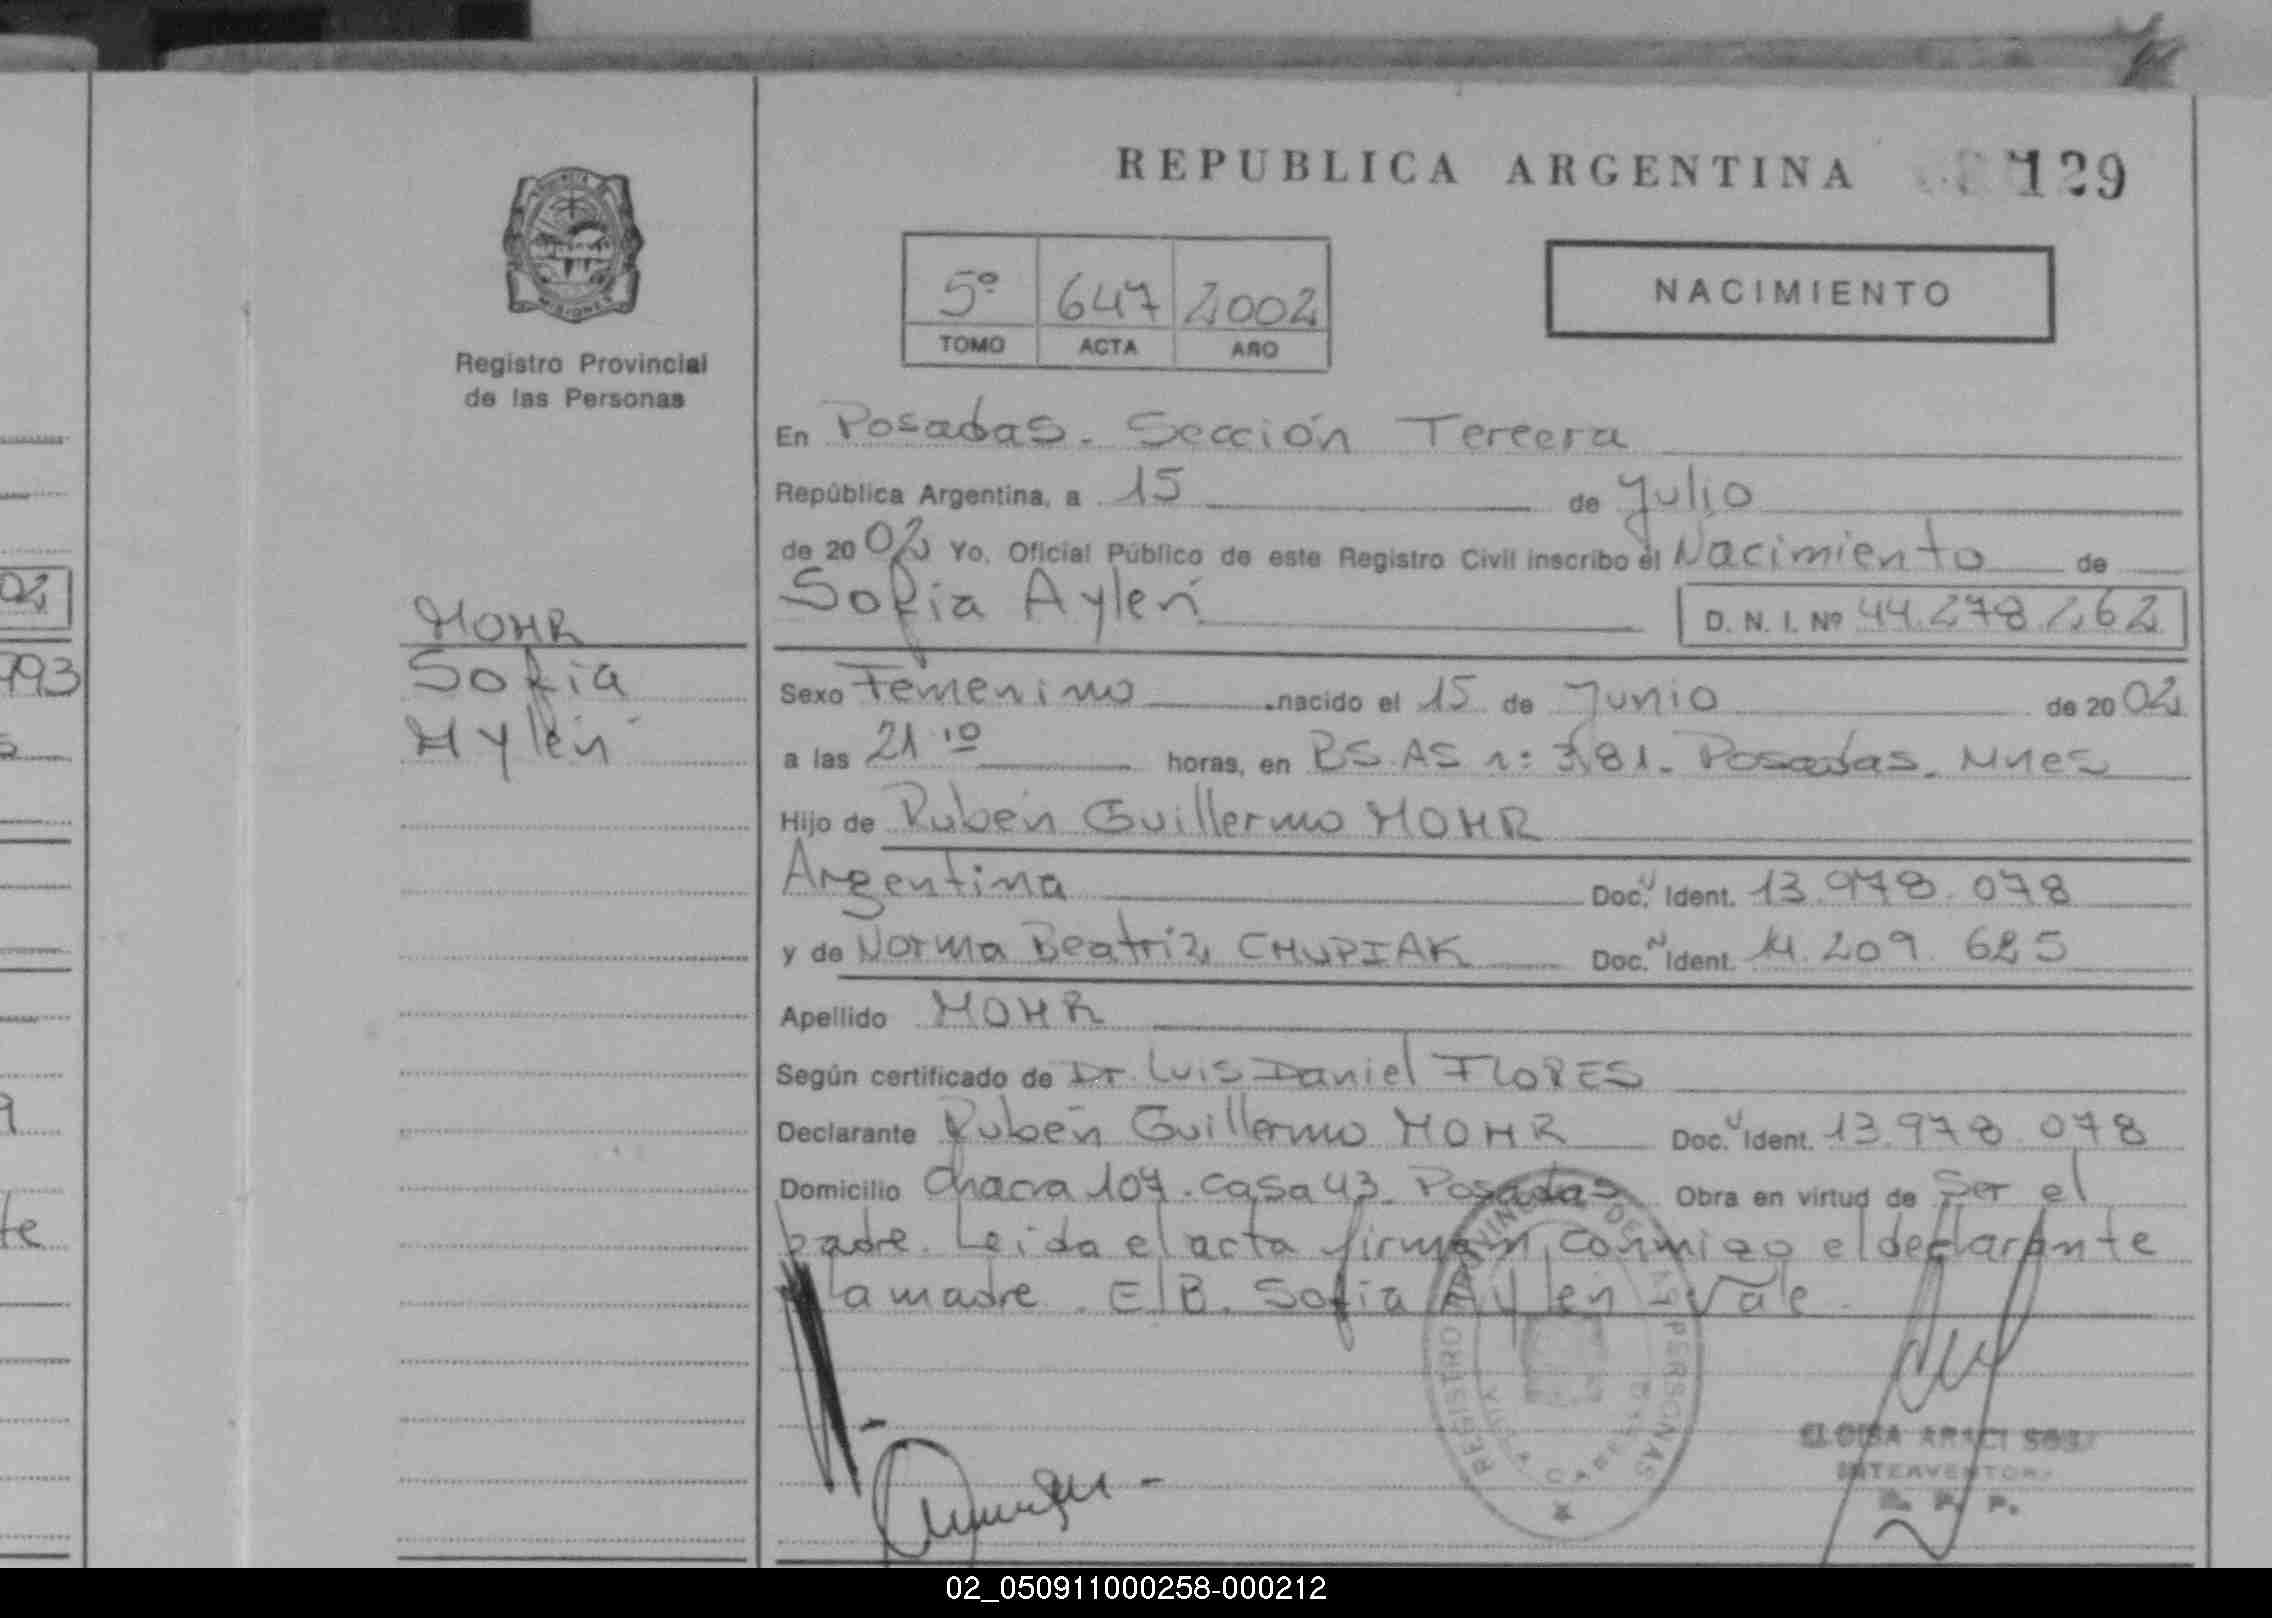 REPUBLICA ARGENTINA 129
5º 647 2002
TOMO ACTA AÑO
NACIMIENTO
Registro Provincial
de las Personas
En Posadas. Sección Tercera
República Argentina, a 15 de Julio
de 2002 Yo, Oficial Público de este Registro Civil inscribo el Nacimiento de
Sofia Aylén D. N. I. Nº 44.278.262
MOHR
Sofia
Aylén
Sexo Femenino nacido el 15 de Junio de 2002
a las 21 10 horas, en BS.AS n: 381. Posadas. Mnes
Hijo de Rubén Guillermo MOHR
Argentina Doc. Ident. 13.978.078
y de Norma Beatriz CHUPIAK Doc. Ident. 14.209.625
Apellido MOHR
Según certificado de Dr. Luis Daniel FLORES
Declarante Rubén Guillermo MOHR Doc. Ident. 13.978.078
Domicilio Chacra 107. Casa 43. Posadas Obra en virtud de Ser el
padre. Leida el acta firman conmigo el declarante
la madre. E/B. Sofia Aylén - Vale.
REGISTRO PROVINCIAL DE LAS PERSONAS
ELOISA ARACI
INTERVENTORA
R. P. P.
02
793
te
02_050911000258-000212